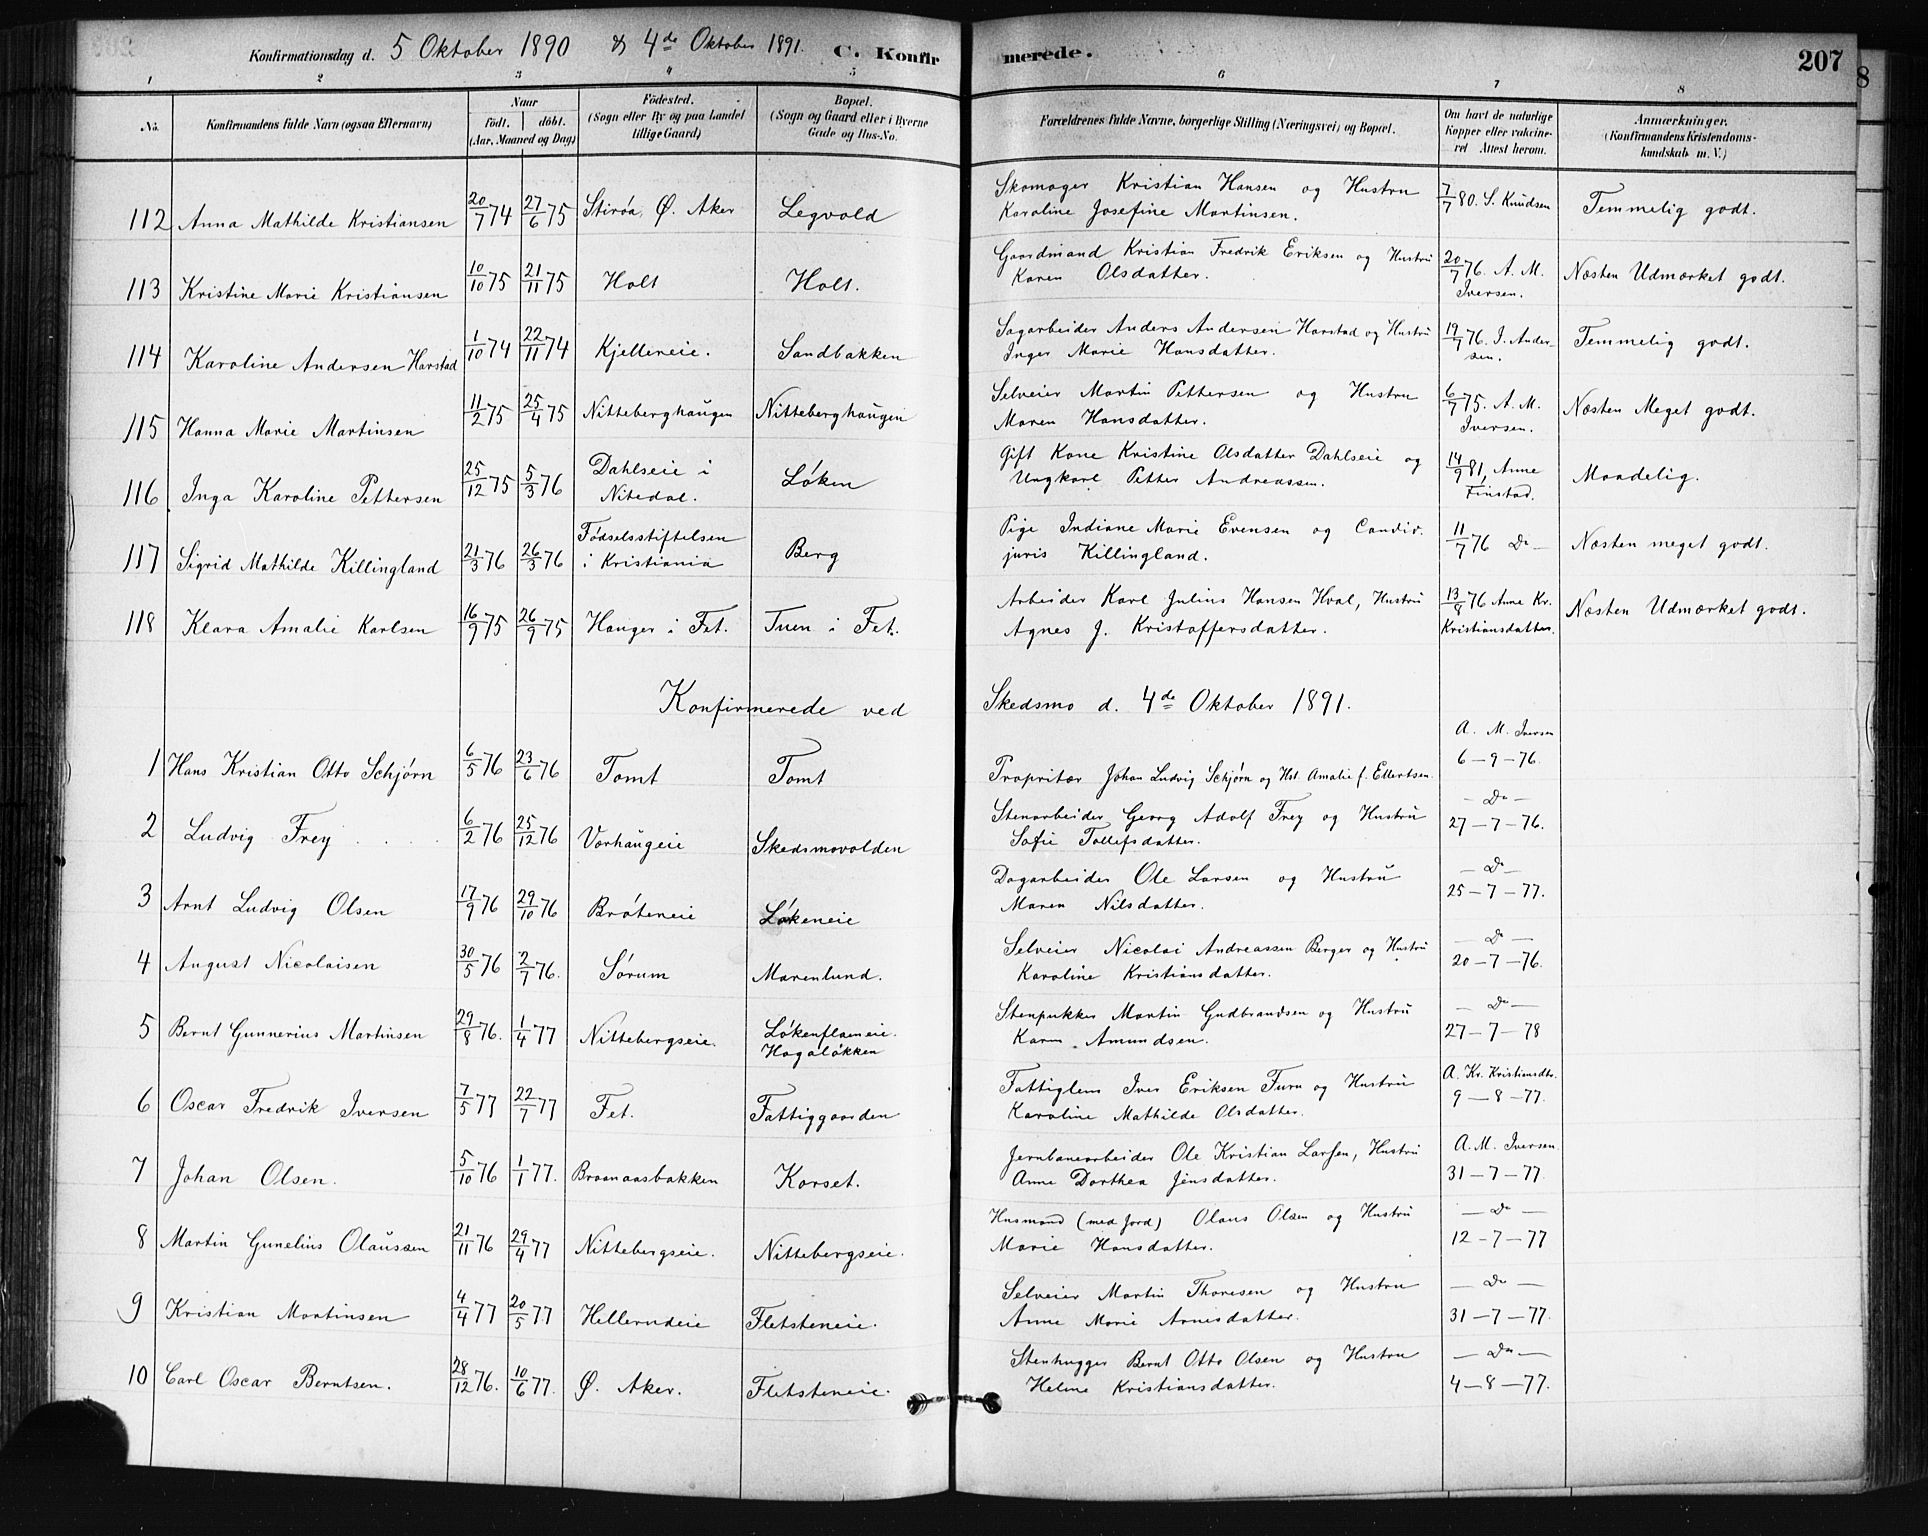 Konfirmationsdag d. 5 Oktober 1890 & 4de Oktober 1891. C. Konfirmerede. 207
1 2 3 4 5 6 7 8
No. Konfirmandens fulde Navn (ogsaa Efternavn) Naar födt. döbt. (Aar, Maaned og Dag) Födested. (Sogn eller By og paa Landet tillige Gaard) Bopæl. (Sogn og Gaard eller i Byerne Gade og Hus-No. Forældrenes fulde Navne, borgerlige Stilling (Næringsvei) og Bopæl. Om havt de naturlige Kopper eller vakcineret Attest herom. Anmærkninger. (Konfirmandens Kristendomskundskab m. V.)
112 Anna Mathilde Kristiansen 20/7 74 27/6 75 Ø. Aker Legvold Skomager Kristian Hansen og Hustru Karoline Josefine Martinsen. 7/7 80. S. Knudsen Temmelig godt.
113 Kristine Marie Kristiansen 10/10 75 21/11 75 Holt Holt. Gaardmand Kristian Fredrik Eriksen og Hustru Karen Olsdatter. 20/7 76. A. M. Iversen. Næsten Udmærket godt.
114 Karoline Andersen Harstad 1/10 74 22/11 74 Kjellereie. Sandbakken Sagarbeider Anders Andersen Harstad og Hustru Inger Marie Hansdatter. 19/7 76. J. Andersen. Temmelig godt.
115 Hanna Marie Martinsen 11/2 75 25/4 75 Nitteberghaugen Nitteberghaugen Selveier Martin Pettersen og Hustru Maren Hansdatter. 6/7 75. A. M. Iversen. Næsten Meget godt.
116 Inga Karoline Pettersen 25/12 75 5/3 76 Dahlseie i Nitedal. Løken Gift Kone Kristine Olsdatter Dahlseie og Ungkarl Petter Andreassen. 14/9 81, Anne Finstad. Maadelig.
117 Sigrid Mathilde Killingland 21/3 76 26/3 76 Fødselsstiftelsen i Kristiania Berg Pige Indiane Marie Evensen og Candid. juris Killingland. 11/7 76 Do — Næsten meget godt.
118 Klara Amalie Karlsen 16/9 75 26/9 75 Hauger i Fet. Tuen i Fet. Arbeider Karl Julius Hansen Hval, Hustru Agnes J. Kristoffersdatter. 13/8 76 Anne Kr. Kristiansdatter. Næsten Udmærket godt.
Konfirmerede ved Skedsmo d. 4de Oktober 1891.
1 Hans Kristian Otto Schjørn 6/5 76 23/6 76 Tomt Tomt Propritær Johan Ludvig Schjørn og Hst. Amalie f. Ellertsen. A. M. Iversen 6–9–76.
2 Ludvig Frey 6/2 76 25/12 76 Vorhaugeie Skedsmovolden Stenarbeider Georg Adolf Frey og Hustru Sofie Tollefsdatter. — Do — 27–7–76.
3 Arnt Ludvig Olsen 17/9 76 29/10 76 Bråteneie Løkeneie Dagarbeider Ole Larsen og Hustru Maren Nilsdatter. — Do — 25–7–77.
4 August Nicolaisen 30/5 76 2/7 76. Sørum Marenlund. Selveier Nicolai Andreassen Berger og Hustru Karoline Kristiansdatter. — Do — 20–7–76.
5 Bernt Gunnerius Martinsen 29/8 76. 1/4 77 Nittebergseie. Løkenflameie. Hagaløkken Stenpukker Martin Gudbrandsen og Hustru Karen Amundsen. — Do — 27–7–78
6 Oscar Fredrik Iversen 7/5 77 22/7 77 Fet. Fattiggaarden Fattiglem Iver Eriksen Furu og Hustru Karoline Mathilde Olsdatter. A. Kr. Kristiansdtr. 9–8–77.
7 Johan Olsen. 5/10 76 1/1 77. Braanaasbakken Korset. Jernbanearbeider Ole Kristian Larsen, Hustru Anne Dorthea Jensdatter. A. M. Iversen 31–7–77.
8 Martin Gunelius Olaussen 21/11 76 29/4 77 Nittebergseie. Nittebergseie. Husmand (med Jord) Olaus Olsen og Hustru Marie Hansdatter. — Do — 12–7–77
9 Kristian Martinsen 4/4 77 20/5 77 Hellerudeie Fletsteneie. Selveier Martin Thoresen og Hustru Anne Marie Arnesdatter. — Do — 31–7–77.
10 Carl Oscar Berntsen. 28/12 76. 10/6 77. Ø. Aker. Fletsteneie. Stenhugger Bernt Otto Olsen og Hustru Helene Kristiansdatter. — Do — 4–8–77.